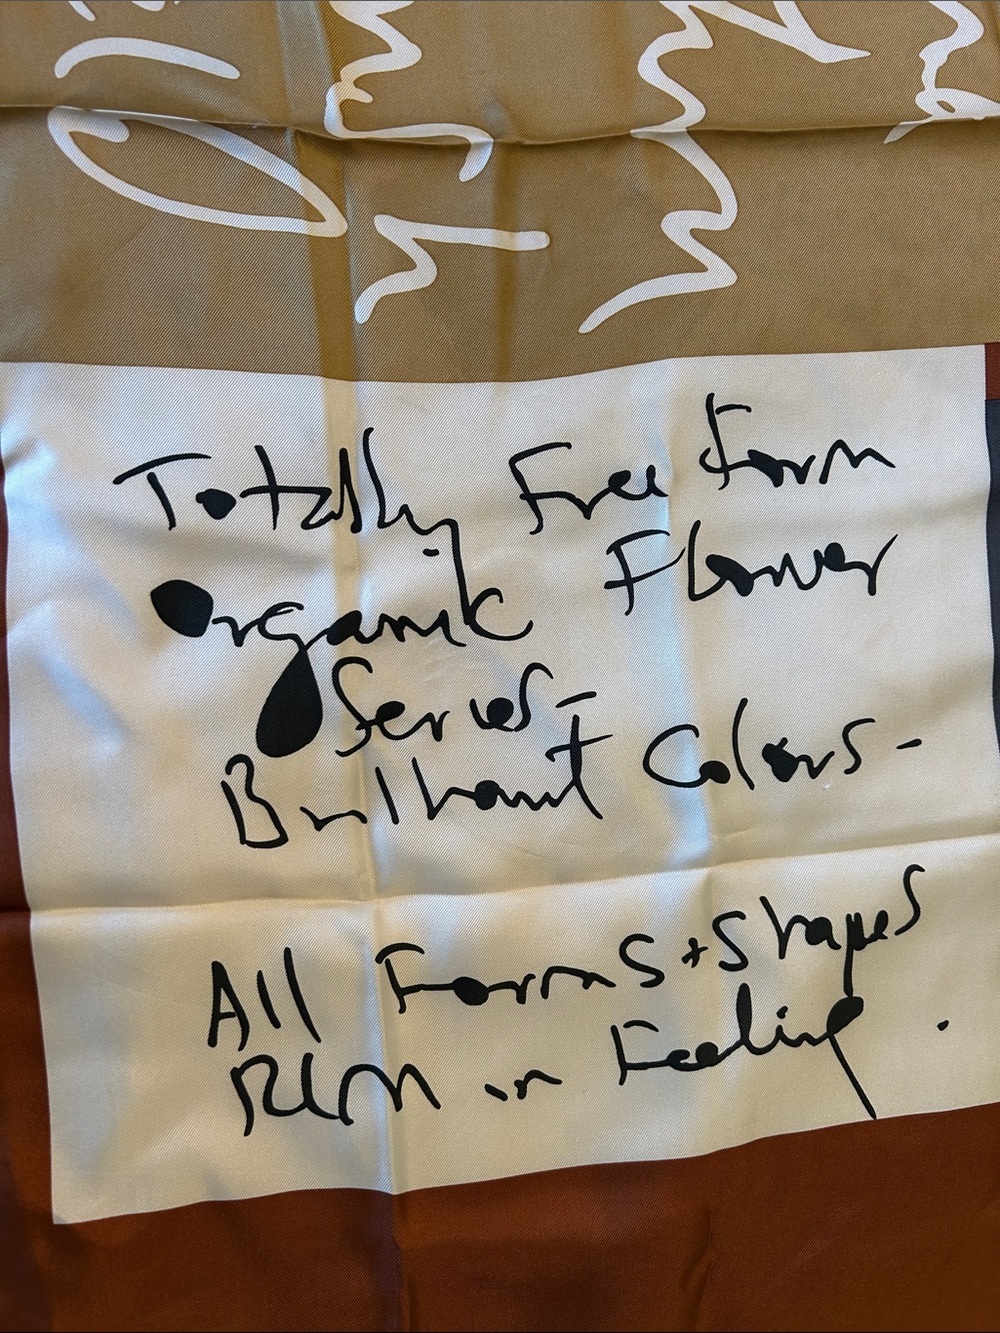 Totally Free Form
Organic Flower
Series-
Brilliant Colors-
All Forms + Shapes
Rich in Feeling.